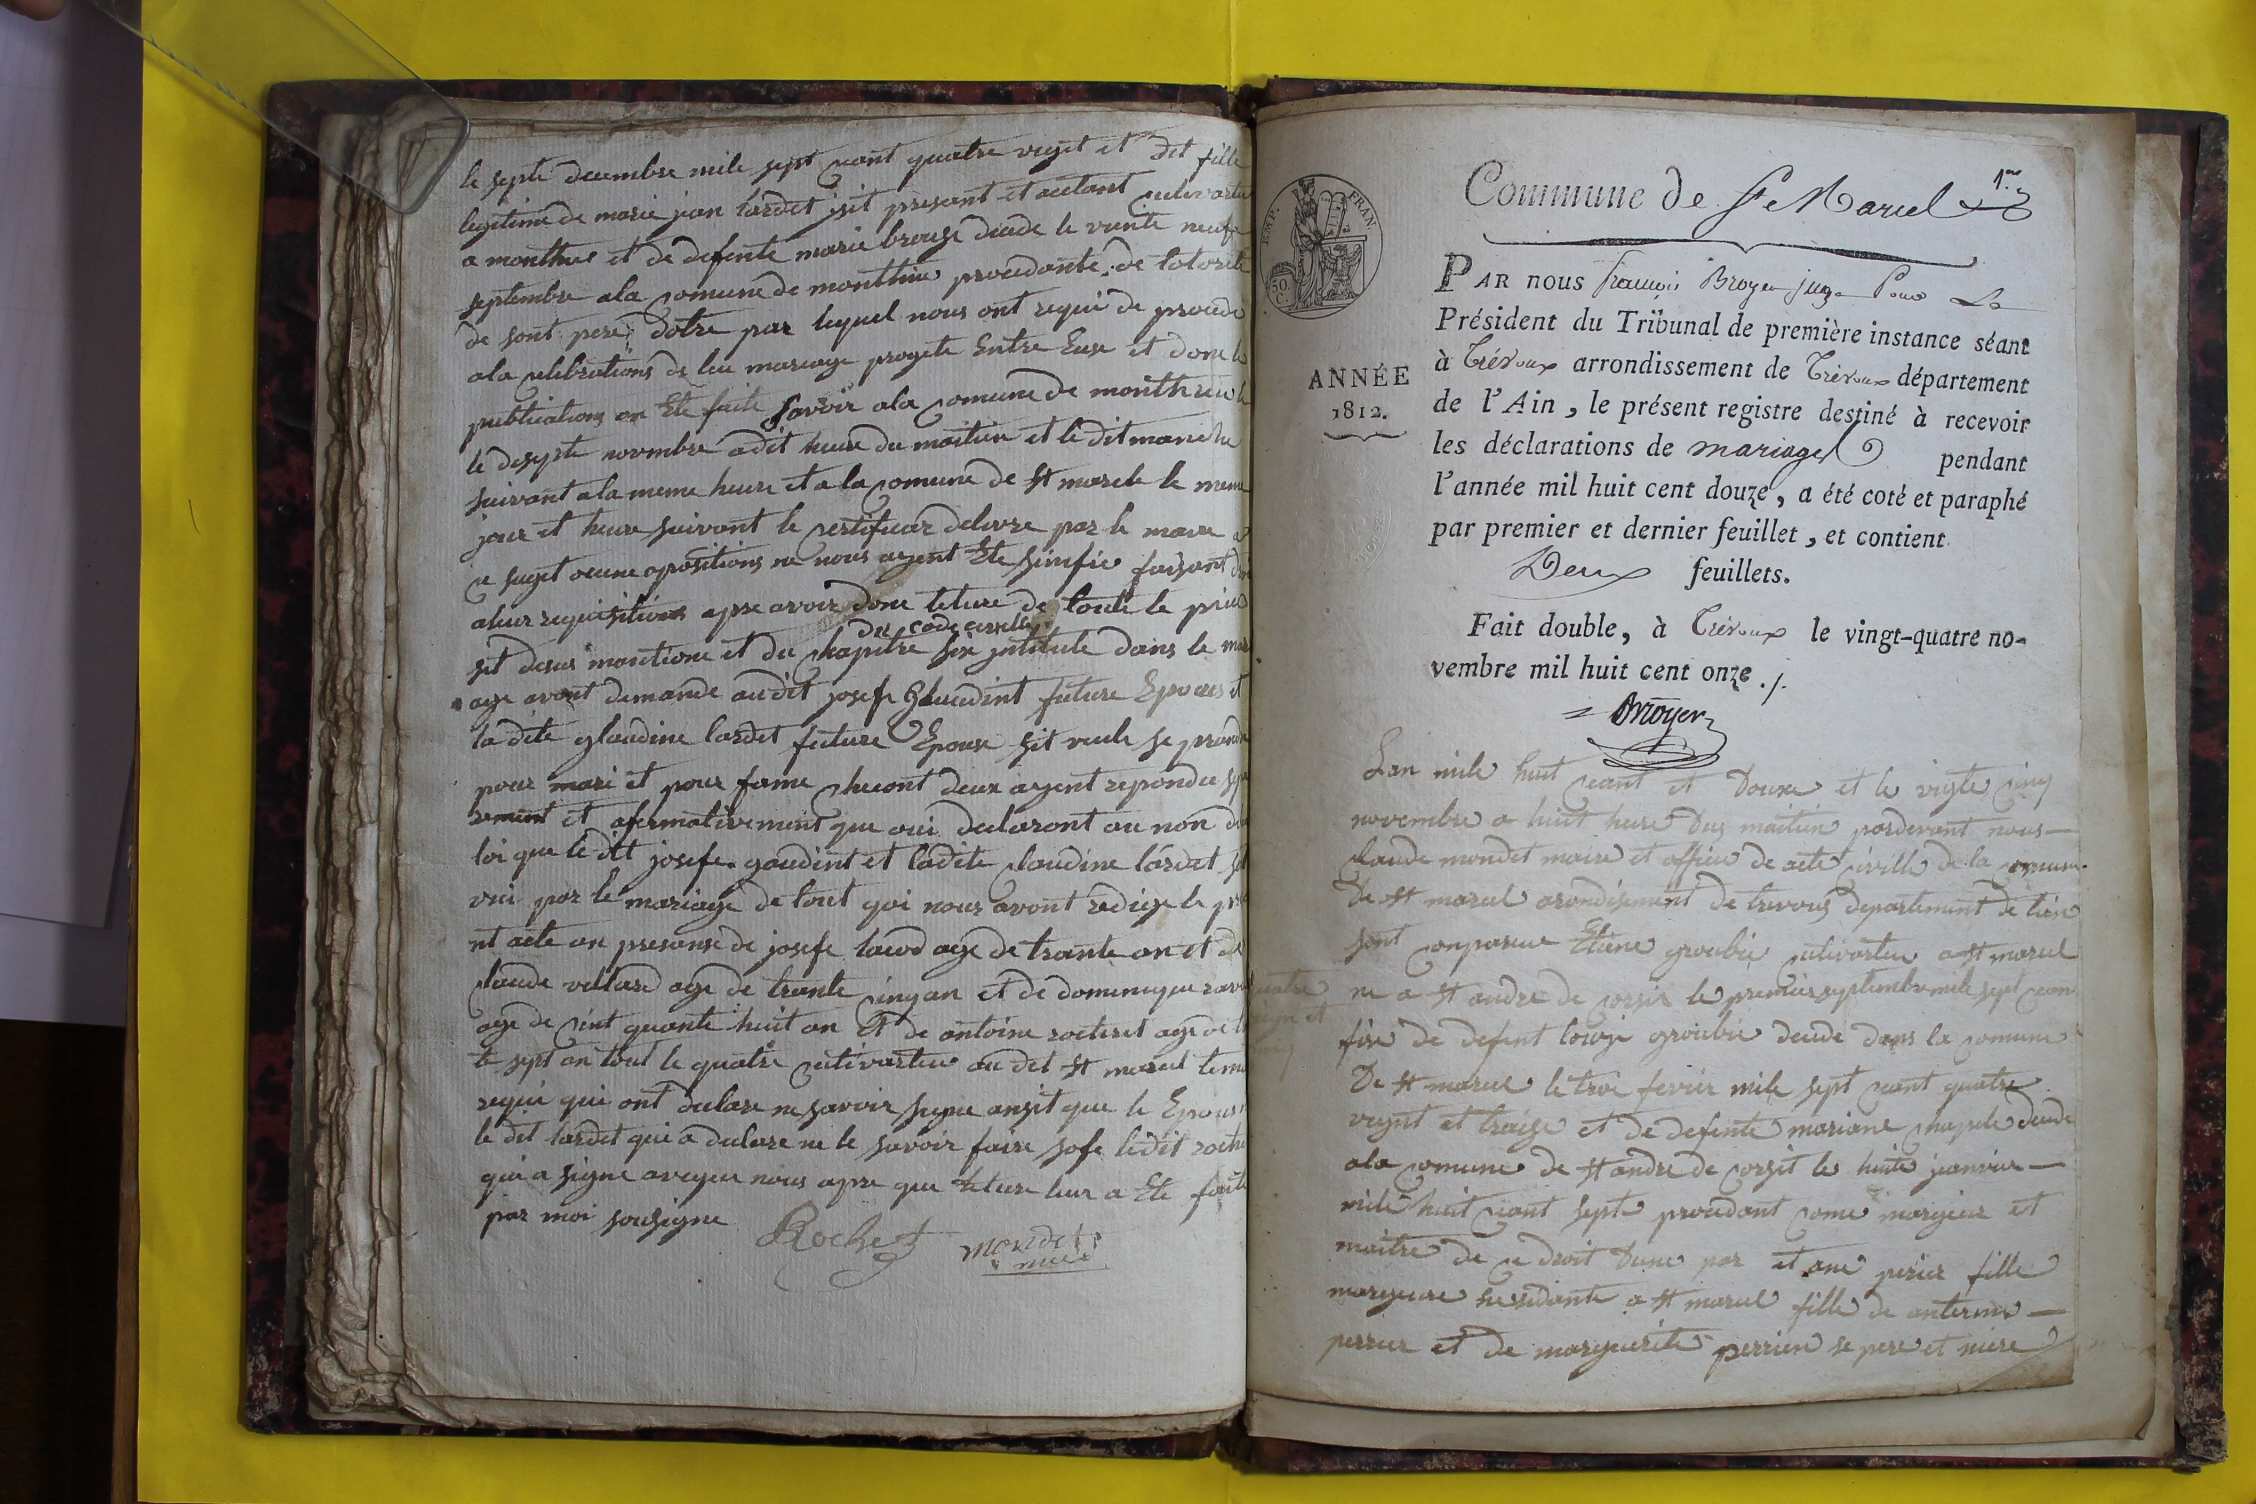 le septe decembre mile sept cant quatre vegnt et dit fille
legitime de marie jean lardet isit presant et acetant cultivarteu
a monthieu et de defente marie brouge dcede le vainte neufe
septembre ala comune de monthieu procedante de lotorite
de sont pere dotre par lequel nous ont requi de procede
ala celebrations de leu mariage progete Entre Euse et donc le
publications on Ete faite savoir ala comune de monthieu le
le desepte novembre a dit heure du maitin et le dit manche
suivant ala meme heure et a la comune de st marcele le meme
jour et heure suivant le certificat delivre par le maire a
ce suget ocune opositions ne nous ayent Ete sinifie faisant droi
aleur requisitions apre avoir done leture de toute le piece
du code civille
sit desus mantione et du chapitre six intitule dans le mari
age avont demande audit josefe Glaudint future Epoues et
la dite glaudine lardet future Epouse sit veule se prandre
pour mari et pour fame checont deux ayent repondu sepa
rement et afermativement que oui declaront au non de la
loi que le dit josefe gaudint et ladite claudine lardet sont
uni par le mariage de tout qoi nous avont redige le prese
nt acte an presanse de josefe lacod age de trante an et de
claude vollard age de trante cinq an et de dominique
age de cint quante huit an Et de antoine rocheret age de
te sept an tout le quatre cultivarteu au dit st marcel temoi
requi qui ont declare ne savoir signe ansit que le Epouse
le dit lardet qui a declare ne le savoir faire sofe ledit roche
qui a signe aveque nous apre que leture leur a Ete faite
par moi sousigne
Rochet mondet
maire
Commune de St Marcel 1.er
EMP. FRAN.
50 C.
PAR NOUS François Broyer juge Pour Le
Président du Tribunal de première instance séant
à Trévoux arrondissement de Trévoux département
de l'Ain, le présent registre destiné à recevoir
les déclarations de mariages pendant
l'année mil huit cent douze, a été coté et paraphé
par premier et dernier feuillet, et contient
Deux feuillets.
ANNÉE
1812.
Fait double, à Trévoux le vingt-quatre no-
vembre mil huit cent onze ./.
Broyer
Lan mile huit cant et Douze et le vignte cinq
novembre a huit heure Dus maitin pardevant nous
claude mondet maire et officie de acte civille de la comune
De st marcel arondisement de trevous departement de l'ain
sont conparue Etiene groubie cultivarteu a st marcel
ne a st andre de corsit le premier septembre mile sept can
quatre
vegn et
cinq
fise de defent louije groubie decede dans la comune
De st marcel le troi fevrier mile sept cant quatre
vegnt et traize et de defente mariane chapele decede
ala comune de st andre de corsit le huite jeanvier
mile huit cant sept procedant come margieur et
maitre de ce droit Dune par et ane perier fille
margeure residante a st marcel fille de antermo
perrier et de marguerite perrien se pere et mere